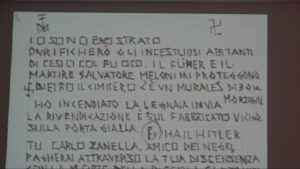 IO SONO EROSTRATO
PURIFICHERÒ GLI INCESTUOSI ABITANTI
DI CESIO COL FUOCO. IL FÜHRER E IL
MARTIRE SALVATORE MELONI MI PROTEGGONO
DIETRO IL CIMITERO C'È UN MURALES DI BOM
MARZANO
HO INCENDIATO LA LEGNAIA IN VIA
LA RIVENDICAZIONE È SUL FABBRICATO VICINO
SULLA PORTA GIALLA. HAIL HITLER
TU CARLO ZANELLA, AMICO DEI NEGRI
PAGHERAI ATTRAVERSO LA TUA DISCENDENZA